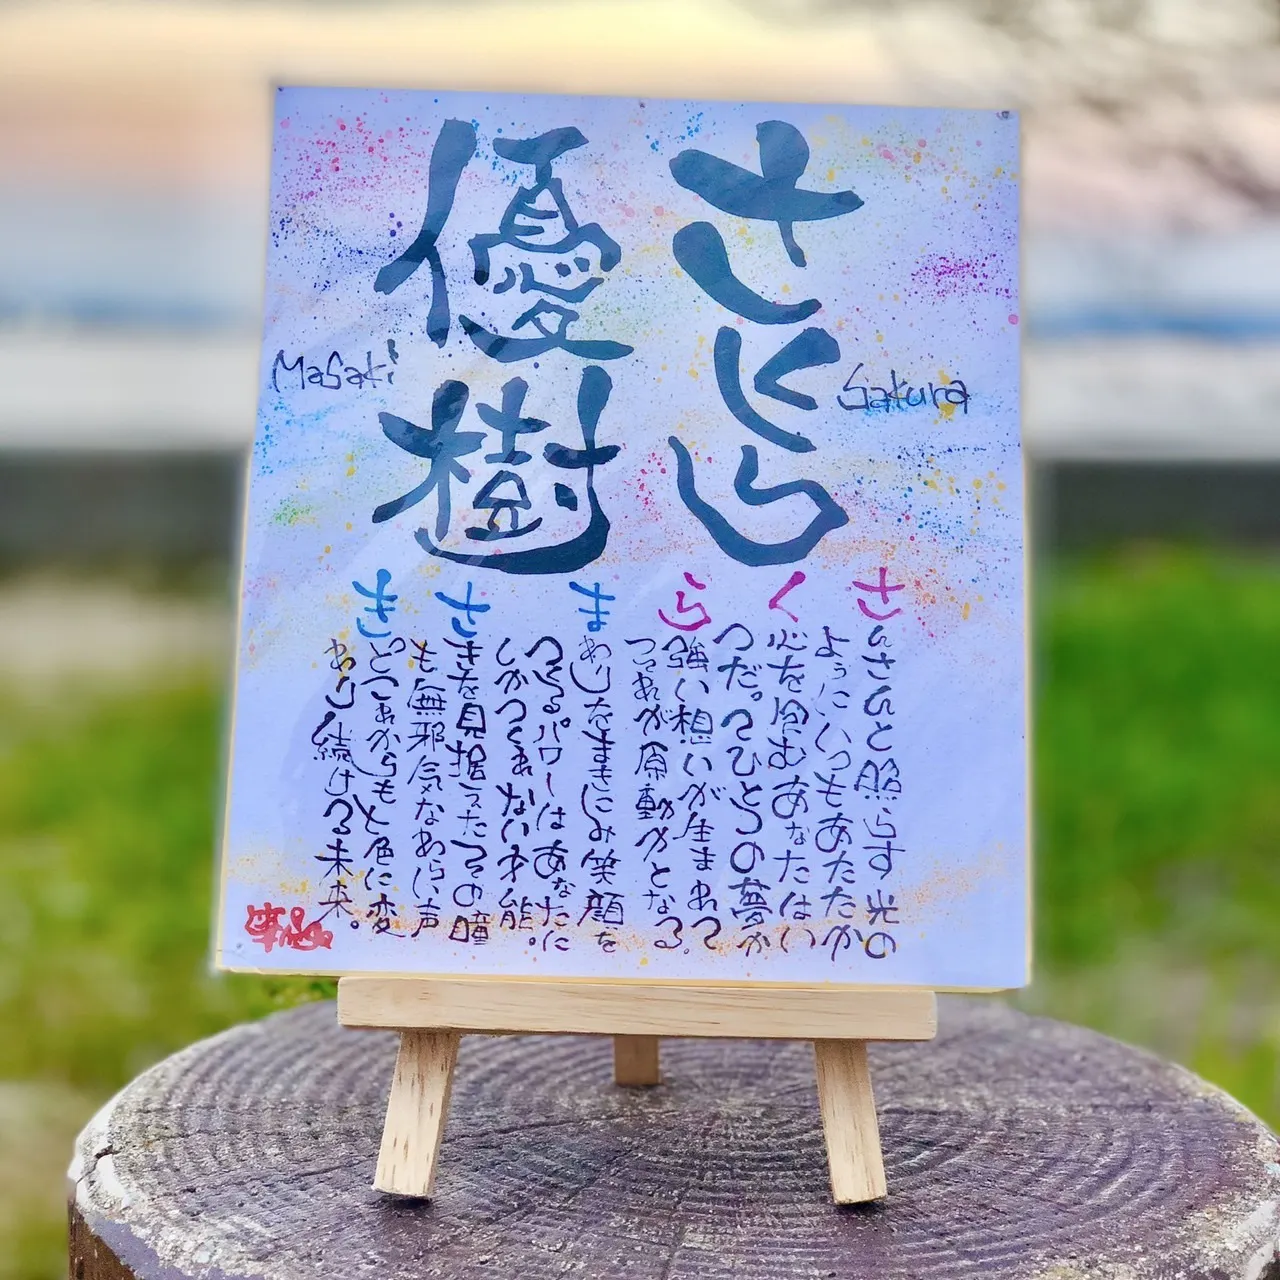 さくら
Sakura
優樹
Masaki
さんさんと照らす光の
ようにいつもあたたか
く心を包むあなたはい
つだってひとつの夢か
ら強い想いが生まれて
それが原動力となる。
まわりをまきこみ笑顔を
つくるパワーはあなたに
しかつくれない才能。
さきを見据えたその瞳
も無邪気なわらい声
きっとこれからも十色に変
わり続ける未来。